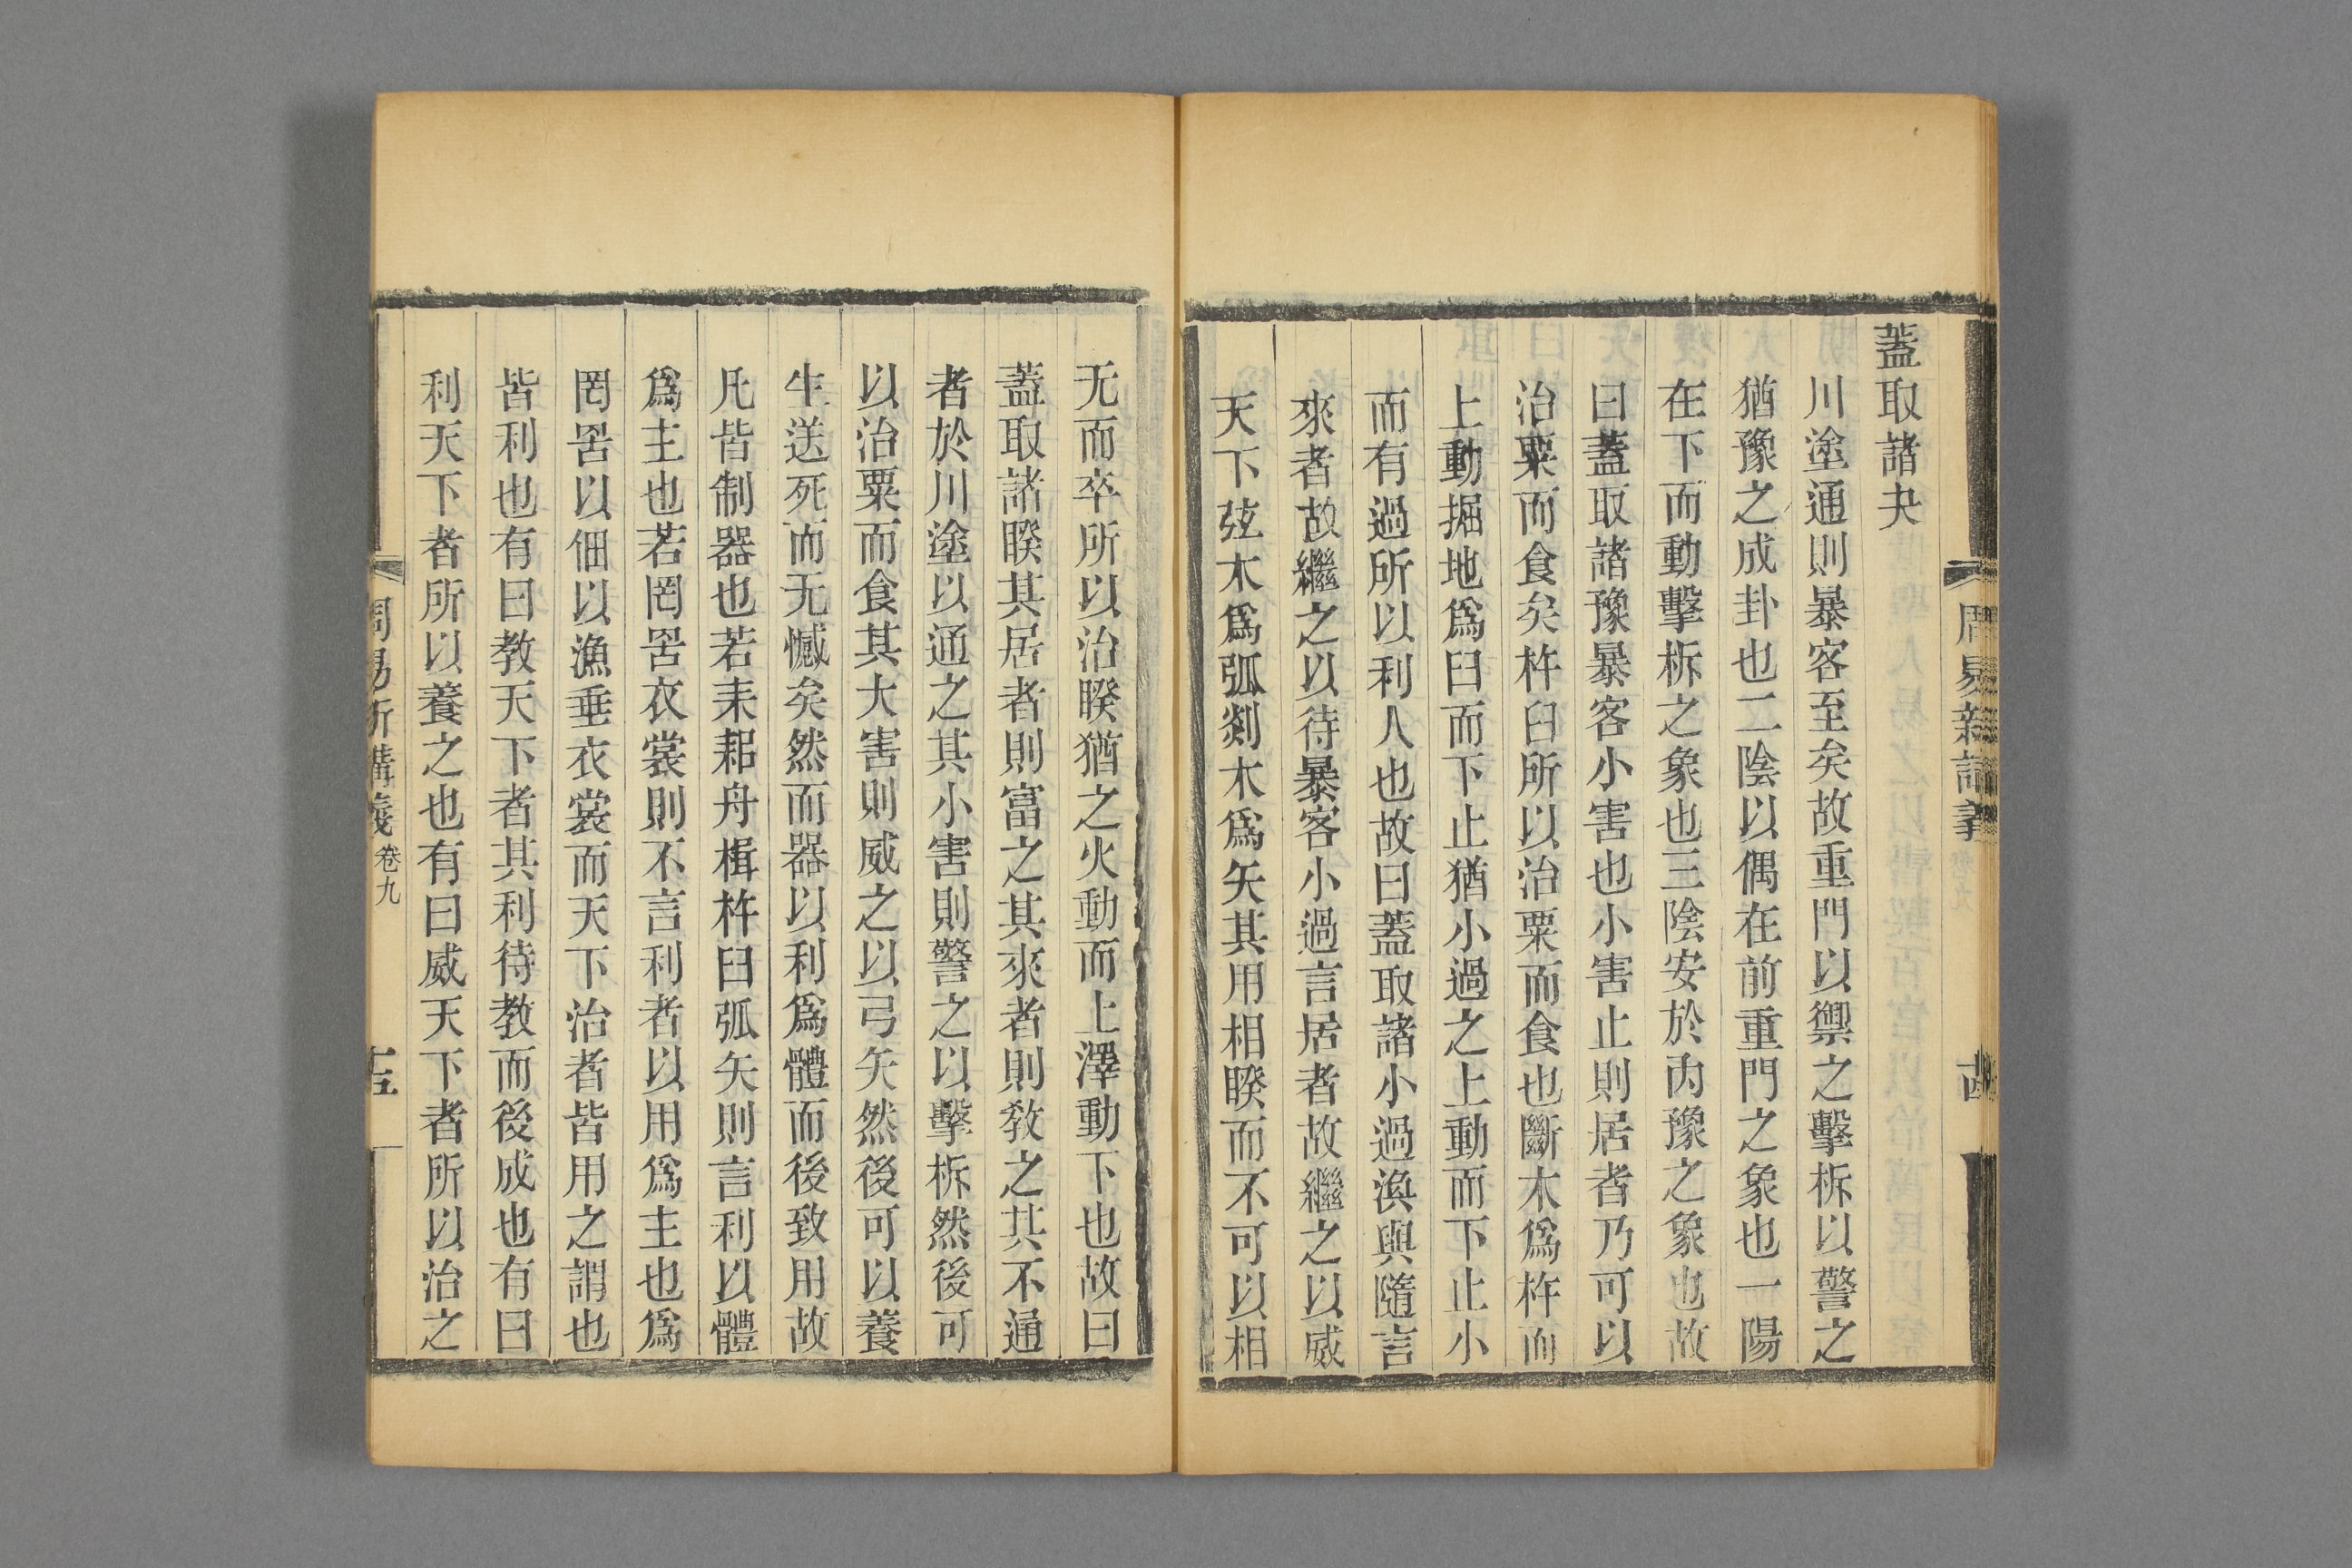 蓋取諸夬
川塗通則暴客至矣故重門以禦之擊柝以警之
猶豫之成卦也二陰以偶在前重門之象也一陽
在下而動擊柝之象也三陰安於內豫之象也故
曰蓋取諸豫暴客小害也小害止則居者乃可以
治粟而食矣杵臼所以治粟而食也斷木爲杵而
上動掘地爲臼而下止猶小過之上動而下止小
而有過所以利人也故曰蓋取諸小過渙與隨言
來者故繼之以待暴客小過言居者故繼之以威
天下弦木爲弧剡木爲矢其用相睽而不可以相
无而卒所以治睽猶之火動而上澤動下也故曰
蓋取諸睽其居者則富之其來者則教之其不通
者於川塗以通之其小害則警之以擊柝然後可
以治粟而食其大害則威之以弓矢然後可以養
生送死而无憾矣然而器以利爲體而後致用故
凡皆制器也若耒耜舟楫杵臼弧矢則言利以體
爲主也若罔罟衣裳則不言利者以用爲主也爲
罔罟以佃以漁垂衣裳而天下治者皆用之謂也
皆利也有曰教天下者其利待教而後成也有曰
利天下者所以養之也有曰威天下者所以治之
周易新講義 卷九 十五